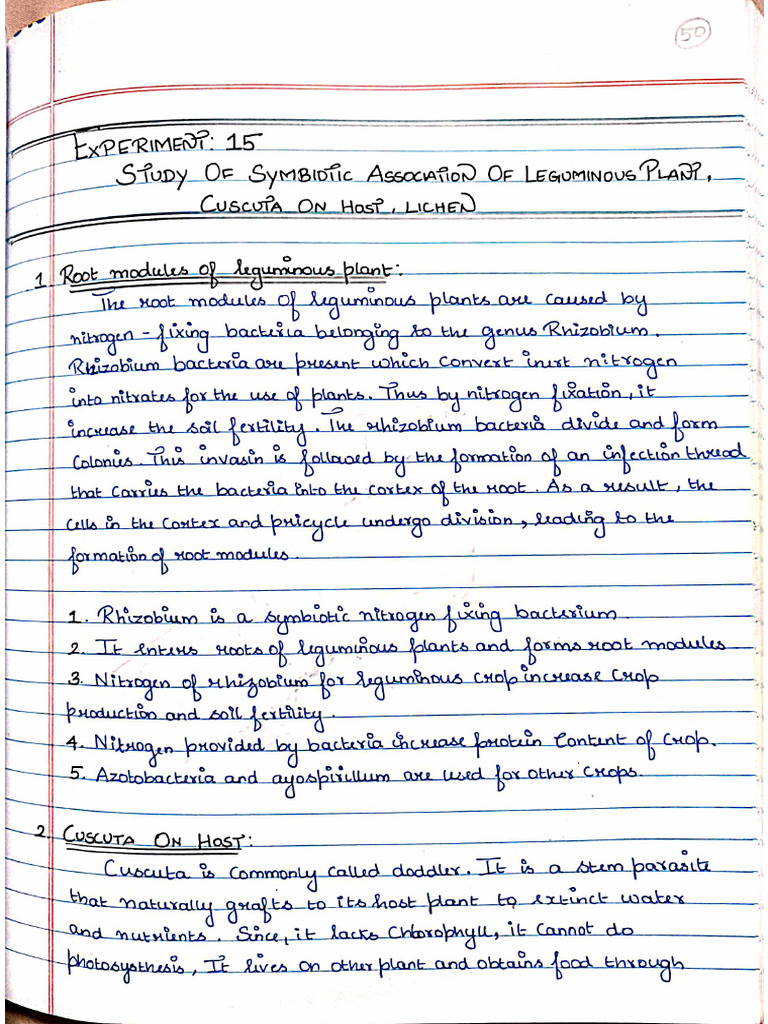 50
EXPERIMENT: 15
STUDY OF SYMBIOTIC ASSOCATION OF LEGUMINOUS PLANT,
CUSCUTA ON HOST, LICHEN
1 Root modules of leguminous plant:
The root modules of leguminous plants are caused by
nitrogen-fixing bacteria belonging to the genus Rhizobium.
Rhizobium bacteria are present which convert inert nitrogen
into nitrates for the use of plants. Thus by nitrogen fixation, it
increase the soil fertility. The rhizobium bacteria divide and form
colonies. This invasin is followed by the formation of an infection thread
that carries the bacteria into the cortex of the root. As a result, the
cells in the cortex and pricycle undergo division, leading to the
formation of root modules.
1. Rhizobium is a symbiotic nitrogen fixing bacterium.
2. It enters roots of leguminous plants and forms root modules
3. Nitrogen of rhizobium for leguminous crop increase crop
production and soil fertility.
4. Nitrogen provided by bacteria increase protein content of crop.
5. Azotobacteria and ayospirillum are used for other crops.
2. CUSCUTA ON HOST:
Cuscuta is commonly called doddler. It is a stem parasite
that naturally grafts to its host plant to extinct water
and nutrients. Since, it lacks Chlorophyll, it cannot do
photosysthesis, It lives on other plant and obtains food through